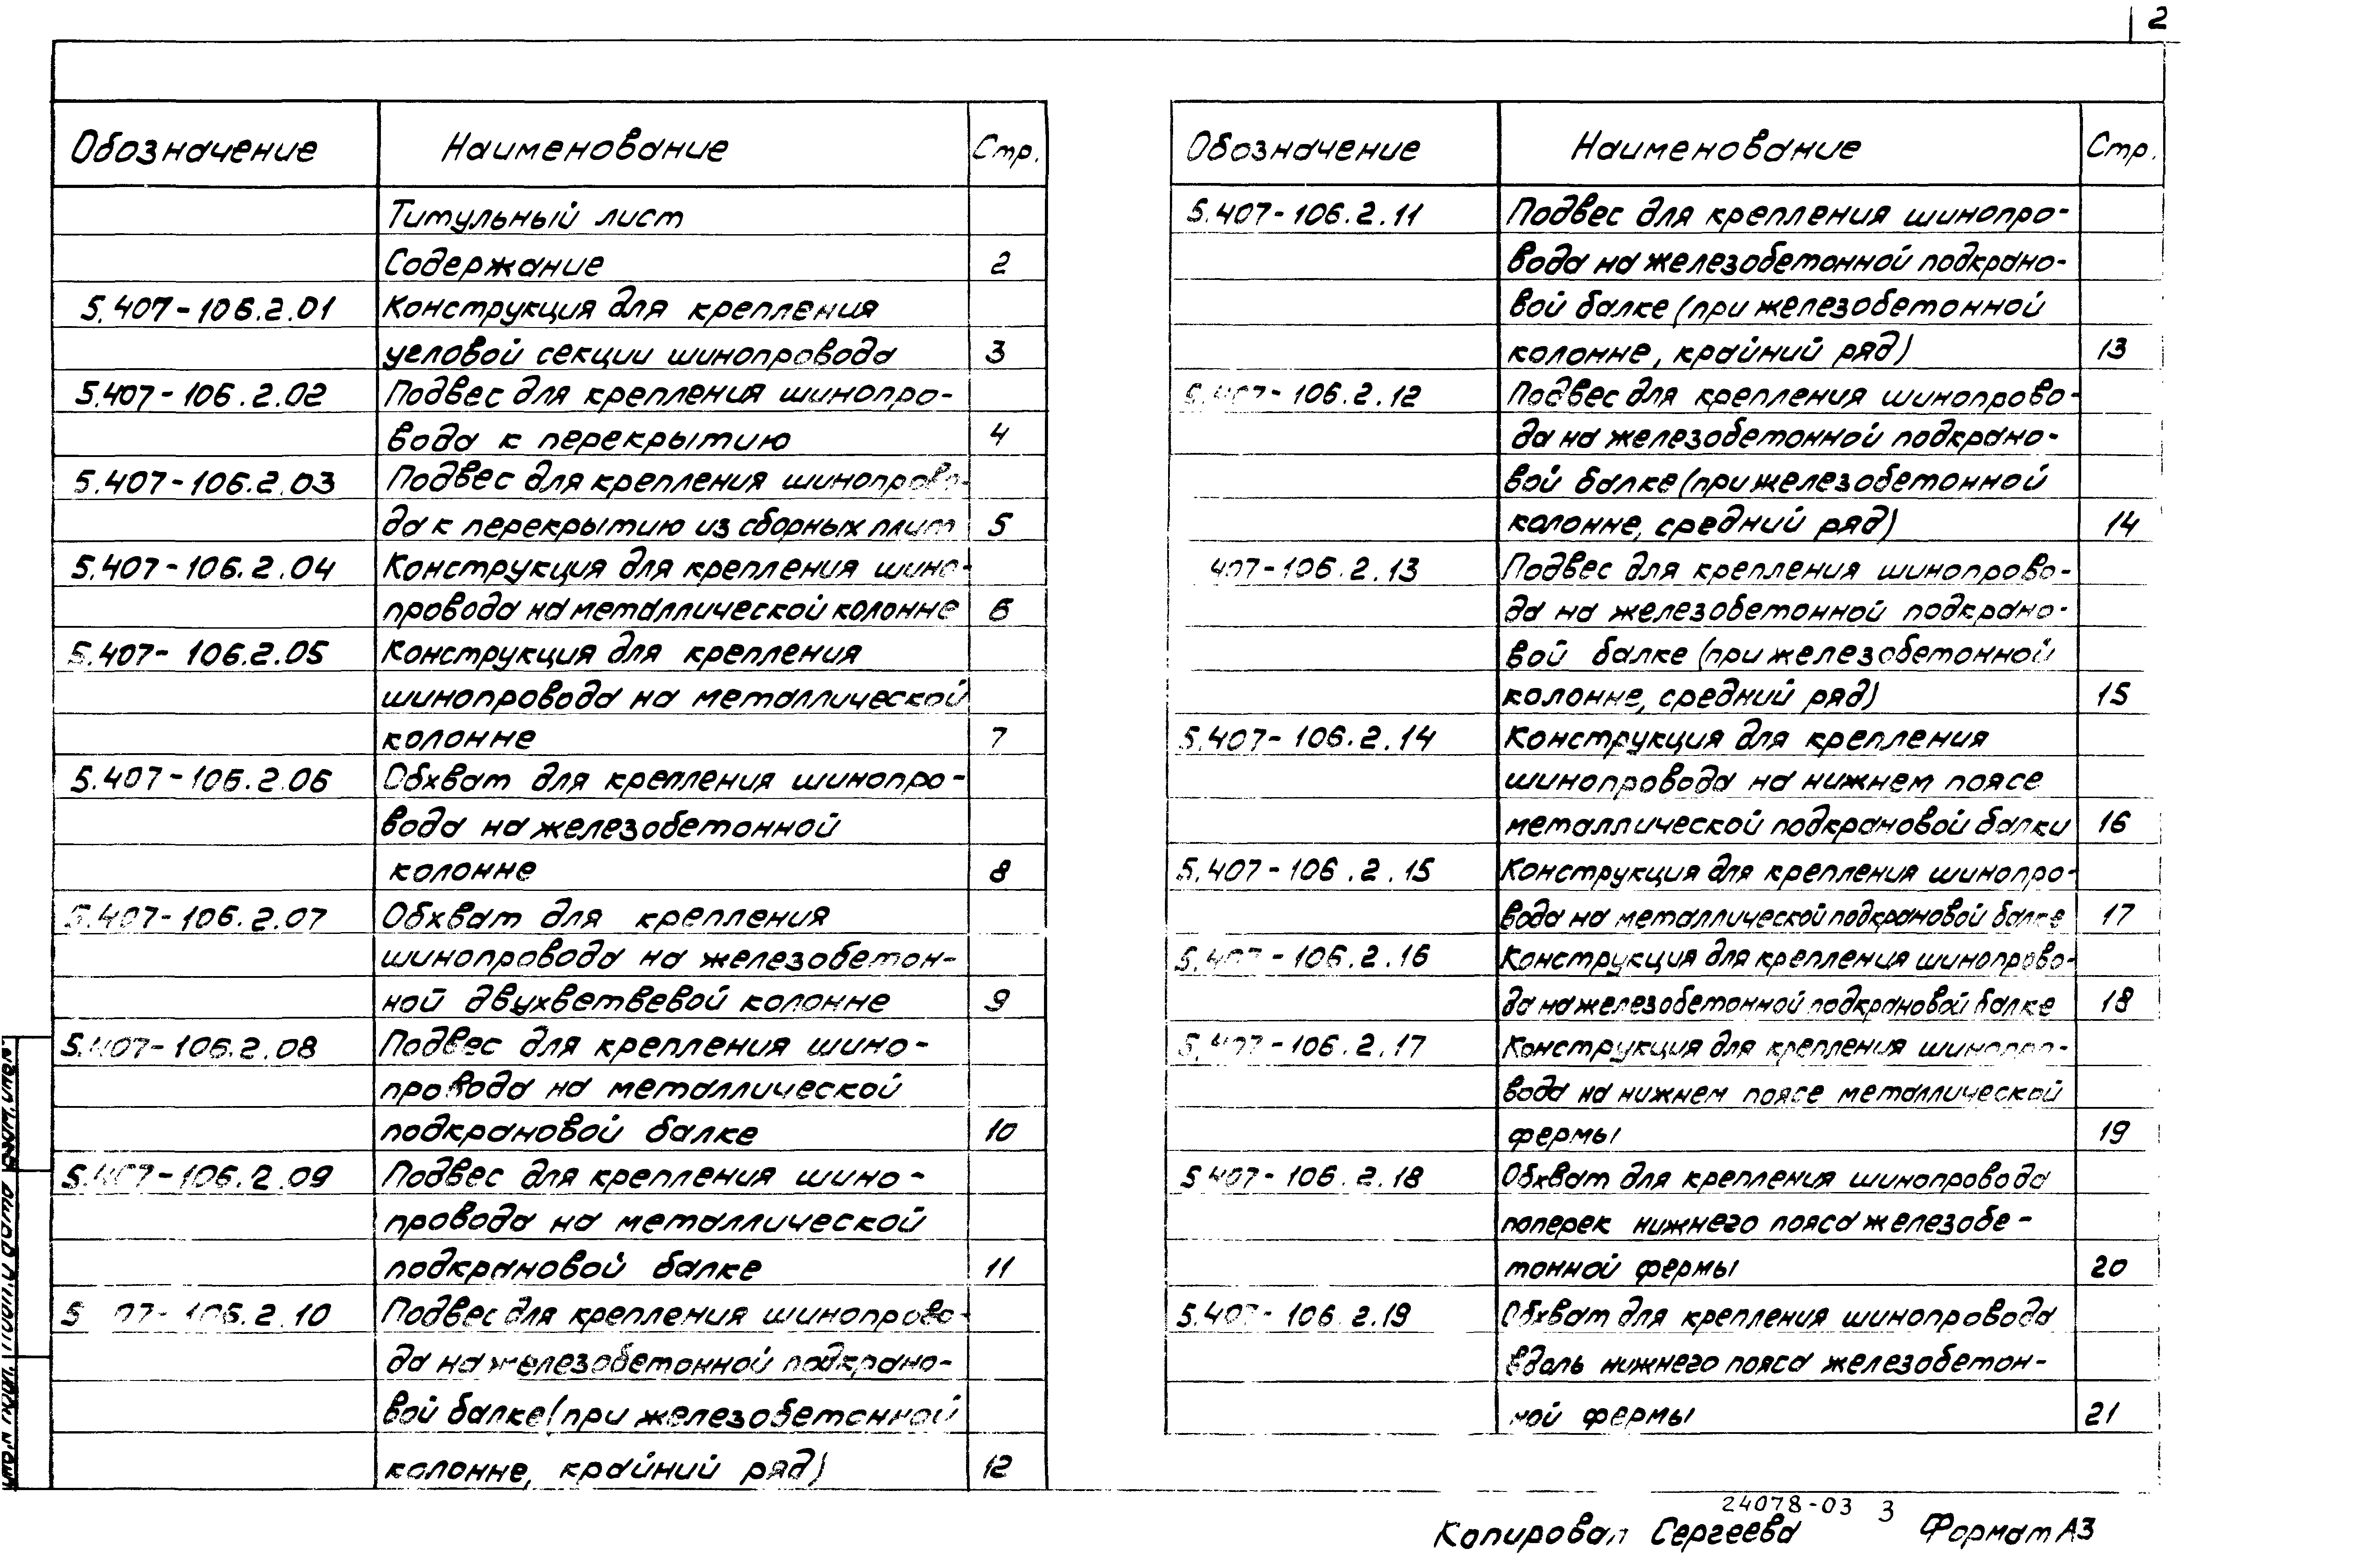 2
Обозначение Наименование Стр.
Титульный лист
Содержание 2
5.407-106.2.01 Конструкция для крепления
угловой секции шинопровода 3
5.407-106.2.02 Подвес для крепления шинопро-
вода к перекрытию 4
5.407-106.2.03 Подвес для крепления шинопрово-
да к перекрытию из сборных плит 5
5.407-106.2.04 Конструкция для крепления шино-
провода на металлической колонне 6
5.407-106.2.05 Конструкция для крепления
шинопровода на металлической
колонне 7
5.407-106.2.06 Обхват для крепления шинопро-
вода на железобетонной
колонне 8
5.407-106.2.07 Обхват для крепления
шинопровода на железобетон-
ной двухветвевой колонне 9
5.407-106.2.08 Подвес для крепления шино-
провода на металлической
подкрановой балке 10
5.407-106.2.09 Подвес для крепления шино-
провода на металлической
подкрановой балке 11
5.407-106.2.10 Подвес для крепления шинопрово-
да на железобетонной подкрано-
вой балке (при железобетонной
колонне, крайний ряд) 12
Обозначение Наименование Стр.
5.407-106.2.11 Подвес для крепления шинопро-
вода на железобетонной подкрано-
вой балке (при железобетонной
колонне, крайний ряд) 13
5.407-106.2.12 Подвес для крепления шинопрово-
да на железобетонной подкрано-
вой балке (при железобетонной
колонне, средний ряд) 14
407-106.2.13 Подвес для крепления шинопрово-
да на железобетонной подкрано-
вой балке (при железобетонной
колонне, средний ряд) 15
5.407-106.2.14 Конструкция для крепления
шинопровода на нижнем поясе
металлической подкрановой балки 16
5.407-106.2.15 Конструкция для крепления шинопро-
вода на металлической подкрановой балке 17
5.407-106.2.16 Конструкция для крепления шинопрово-
да на железобетонной подкрановой балке 18
5.407-106.2.17 Конструкция для крепления шинопро-
вода на нижнем поясе металлической
фермы 19
5.407-106.2.18 Обхват для крепления шинопровода
поперек нижнего пояса железобе-
тонной фермы 20
5.407-106.2.19 Обхват для крепления шинопровода
вдоль нижнего пояса железобетон-
ной фермы 21
24078-03 3
Копировал Сергеева Формат А3